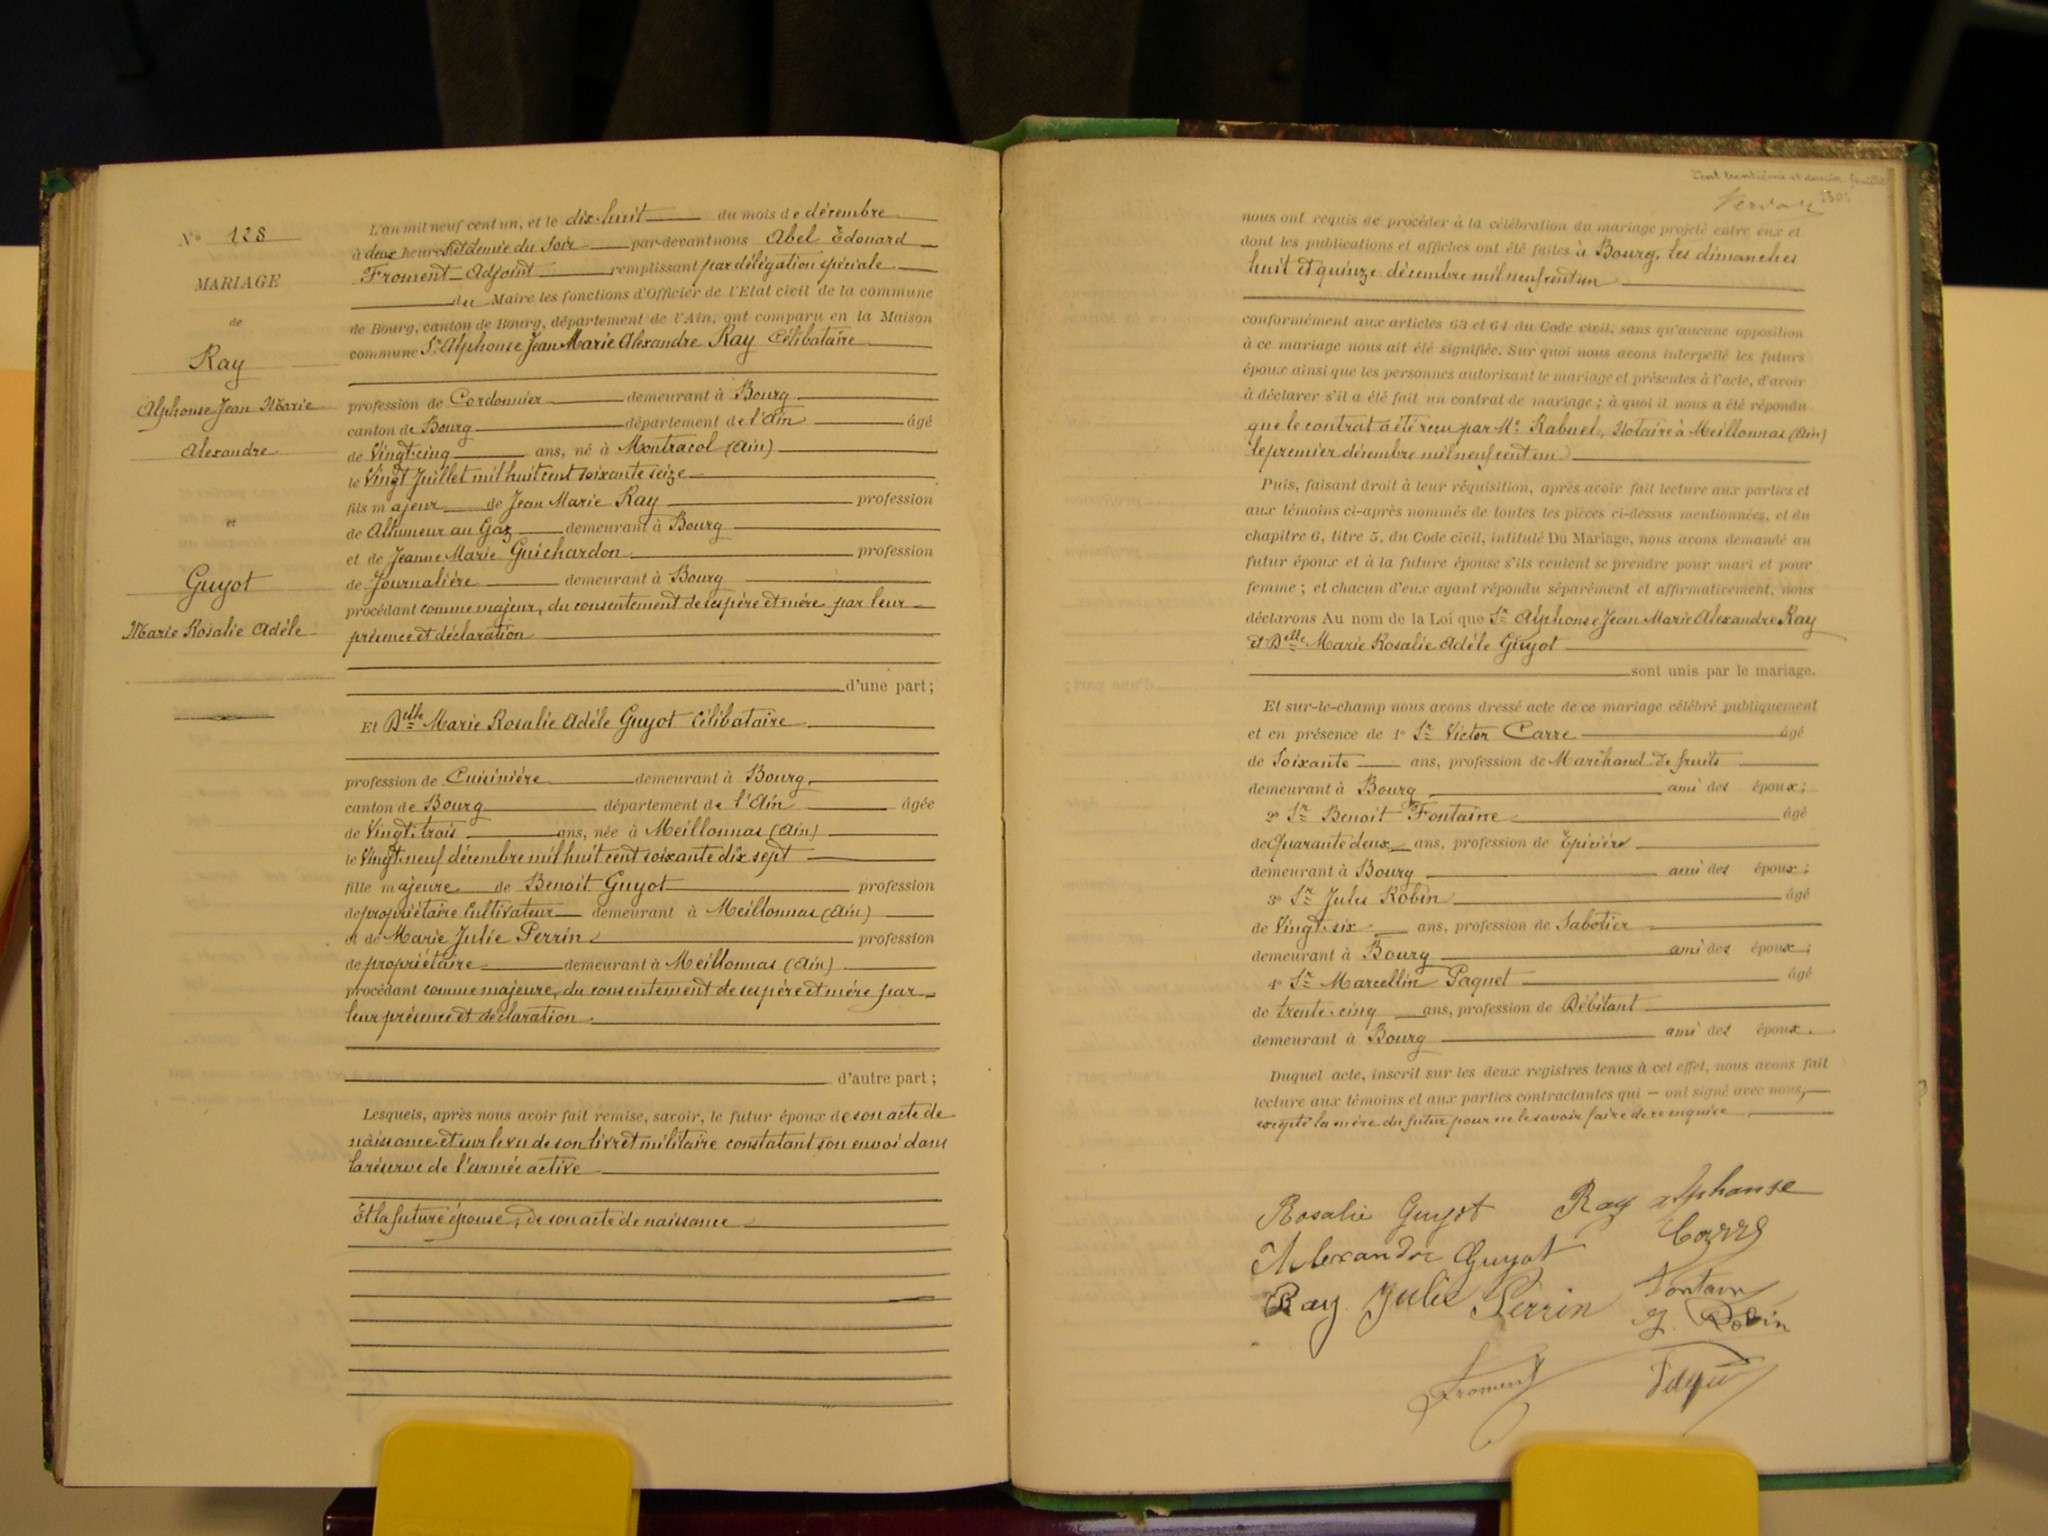 N° 128
MARIAGE
de
Ray
Alphonse Jean Marie
Alexandre
et
Guyot
Marie Rosalie Adèle
L'an mil neuf cent un, et le dix-huit du mois de décembre
à deux heures et demie du Soir par-devant nous Abel Edouard
Froment Adjoint remplissant par délégation spéciale
du Maire les fonctions d'Officier de l'Etat civil de la commune
de Bourg, canton de Bourg, département de l'Ain, ont comparu en la Maison
commune Sr Alphonse Jean Marie Alexandre Ray Célibataire
profession de Cordonnier demeurant à Bourg
canton de Bourg département de l'Ain âgé
de Vingt-cinq ans, né à Montracol (Ain)
le Vingt Juillet mil huit cent soixante seize
fils majeur de Jean Marie Ray profession
de Allumeur au Gaz demeurant à Bourg
et de Jeanne Marie Guichardon profession
de Journalière demeurant à Bourg
procédant comme majeur, du consentement de ses père et mère par leur
présence et déclaration
d'une part;
Et Delle Marie Rosalie Adèle Guyot Célibataire
profession de Cuisinière demeurant à Bourg
canton de Bourg département de l'Ain âgée
de Vingt-trois ans, née à Meillonnas (Ain)
le Vingt-neuf décembre mil huit cent soixante dix sept
fille majeure de Benoit Guyot profession
de propriétaire Cultivateur demeurant à Meillonnas (Ain)
et de Marie Julie Perrin profession
de propriétaire demeurant à Meillonnas (Ain)
procédant comme majeure, du consentement de ses père et mère par
leur présence et déclaration
d'autre part;
Lesquels, après nous avoir fait remise, savoir, le futur époux de son acte de
naissance et sur le vu de son livret militaire constatant son envoi dans
la réserve de l'armée active
Et la future épouse, de son acte de naissance
nous ont requis de procéder à la célébration du mariage projeté entre eux et
dont les publications et affiches ont été faites à Bourg, les dimanches
huit et quinze décembre mil neuf cent un
conformément aux articles 63 et 64 du Code civil, sans qu'aucune opposition
à ce mariage nous ait été signifiée. Sur quoi nous avons interpellé les futurs
époux ainsi que les personnes autorisant le mariage et présentes à l'acte, d'avoir
à déclarer s'il a été fait un contrat de mariage; à quoi il nous a été répondu
que le contrat a été reçu par Me Rabuel, Notaire à Meillonnas (Ain)
le premier décembre mil neuf cent un
Puis, faisant droit à leur réquisition, après avoir fait lecture aux parties et
aux témoins ci-après nommés de toutes les pièces ci-dessus mentionnées, et du
chapitre 6, titre 5, du Code civil, intitulé Du Mariage, nous avons demandé au
futur époux et à la future épouse s'ils veulent se prendre pour mari et pour
femme; et chacun d'eux ayant répondu séparément et affirmativement, nous
déclarons Au nom de la Loi que Sr Alphonse Jean Marie Alexandre Ray
et Delle Marie Rosalie Adèle Guyot
sont unis par le mariage.
Et sur-le-champ nous avons dressé acte de ce mariage célébré publiquement
et en présence de 1° Sr Victor Carre âgé
de Soixante ans, profession de Marchand de fruits
demeurant à Bourg ami des époux;
2° Sr Benoit Fontaine âgé
de Quarante deux ans, profession de Epicière
demeurant à Bourg ami des époux;
3° Sr Jules Robin âgé
de Vingt-six ans, profession de Sabotier
demeurant à Bourg ami des époux;
4° Sr Marcellin Paquet âgé
de trente-cinq ans, profession de Débitant
demeurant à Bourg ami des époux.
Duquel acte, inscrit sur les deux registres tenus à cet effet, nous avons fait
lecture aux témoins et aux parties contractantes qui ont signé avec nous,
excepté la mère du futur pour ne le savoir faire de ce enquise
Rosalie Guyot Ray Alphonse
Carre
Alexandre Guyot
Ray Julie Perrin
J. Robin
Froment